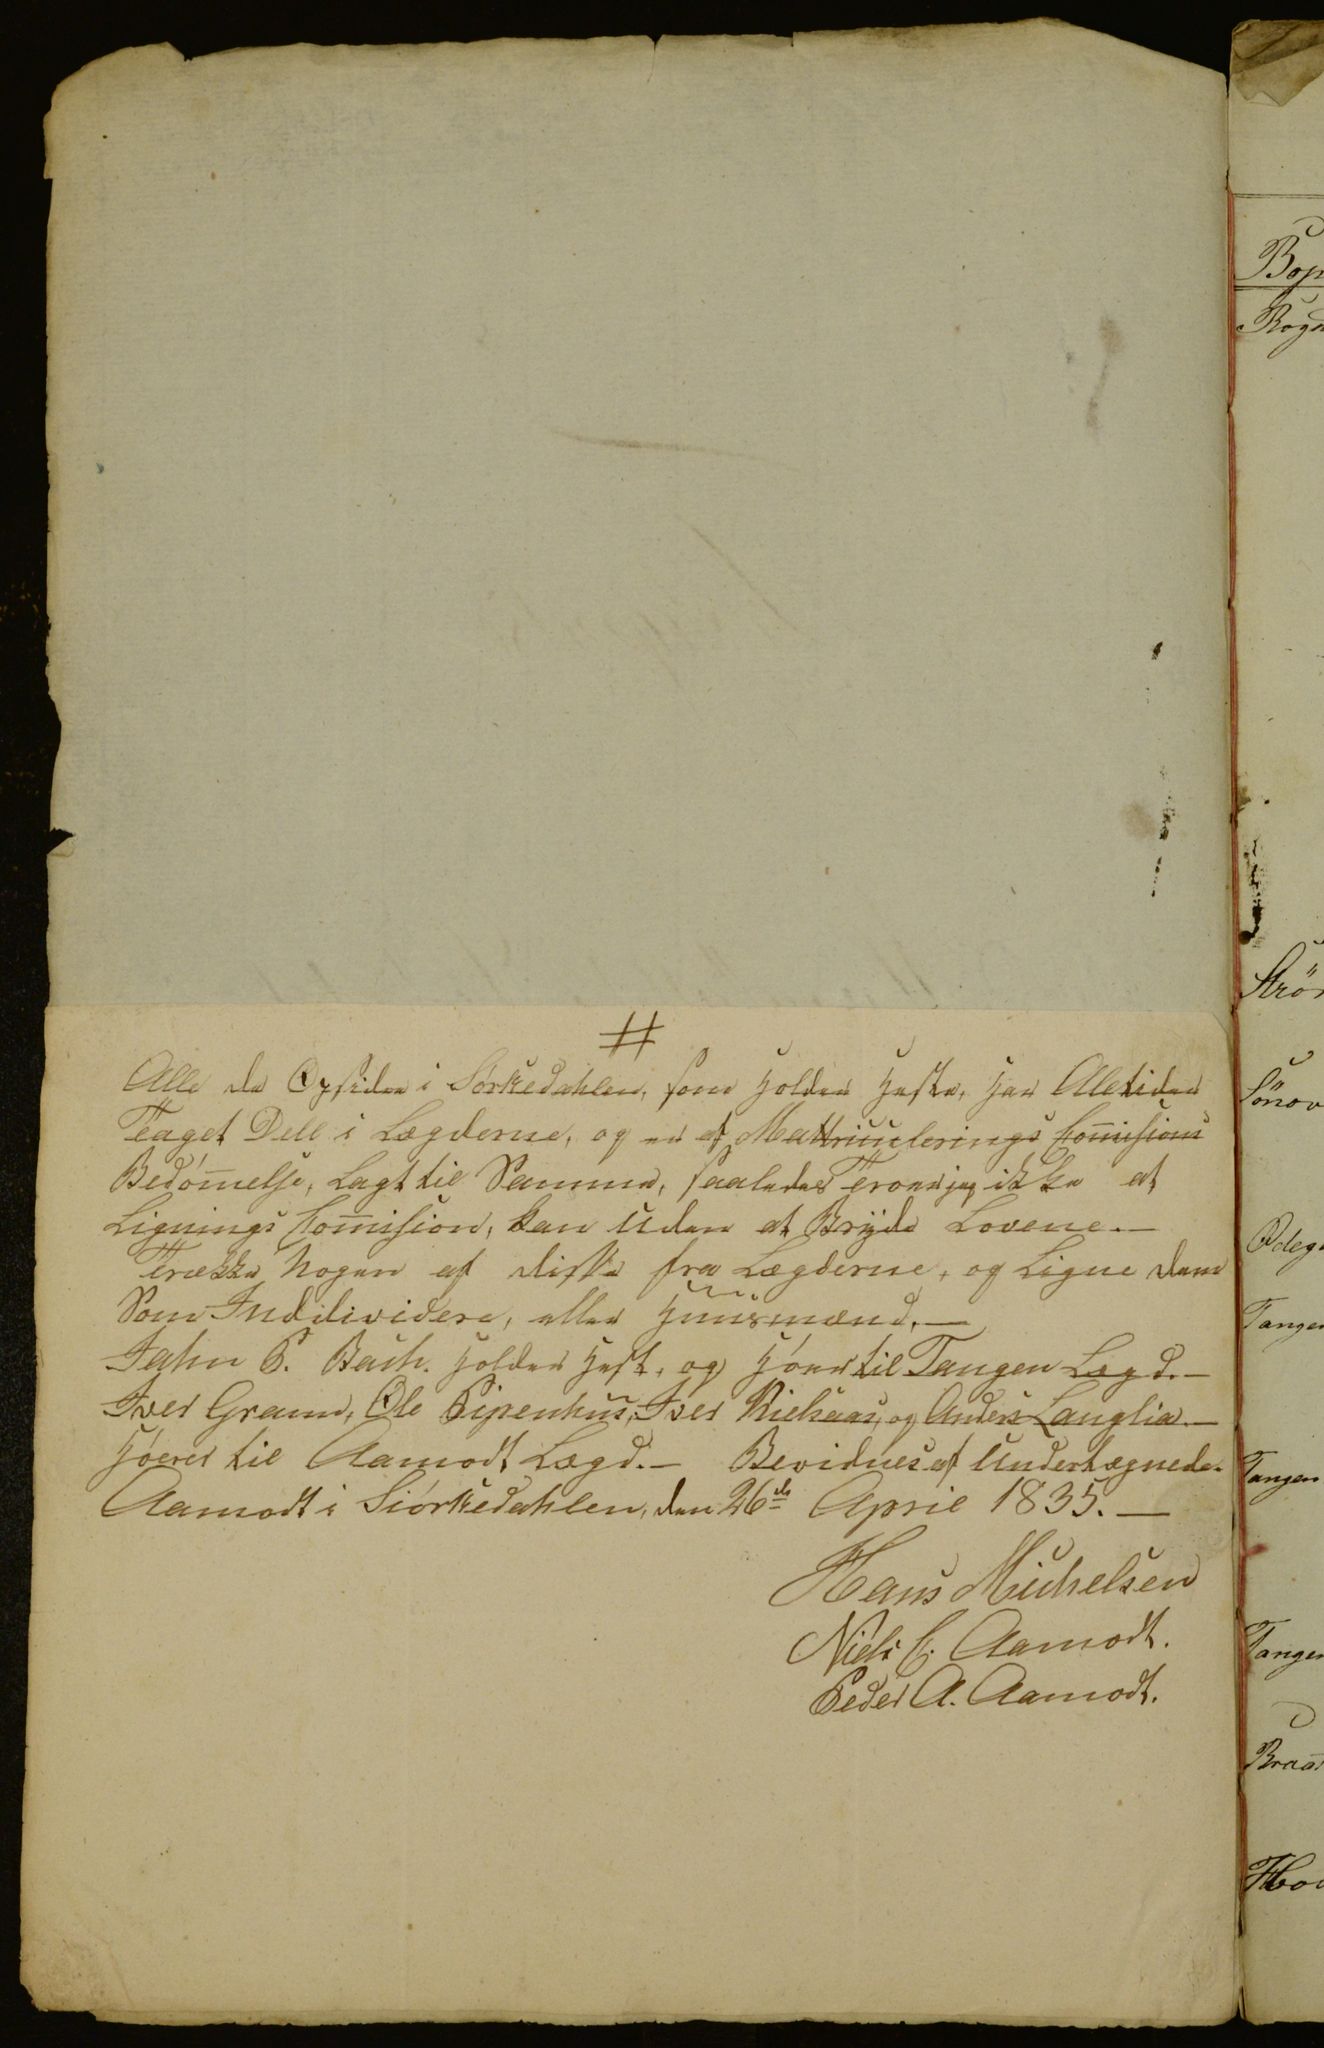 #
Alle de Opsidere i Sørkedahlen, som Holder Heste, Har Aletider
Teaget Dell i Lægderne, og er af Mattriculerings Com̄isions
Bedøm̄else, Lagt til Samme, saaledes Troer jeg ikke at
Lignings Com̄ision, kan Uden at Bryde Lovene.—
Trække Nogen af disse fra Lægderne, og Ligne dem
Som Indilividere, eller Huusmænd.—
Jahn P. Bach. Holder Hest, og Høer til Tangen Lægd.—
Iver Gram, Ole Pipenhus, Iver Nielsaas, og Anders Langlia.—
Høerer til Aamodt Lægd.— Bevidnes af Undertægnede.
Aamodt i Siørkedahlen, den 26de April 1835.—
Hans Michelsen
Niels C. Aamodt.
Peder A. Aamodt.
Bop
Rogn
Strö
Sönov
Odeg
Tangen
Tangen
Tangen
Braa
Hov